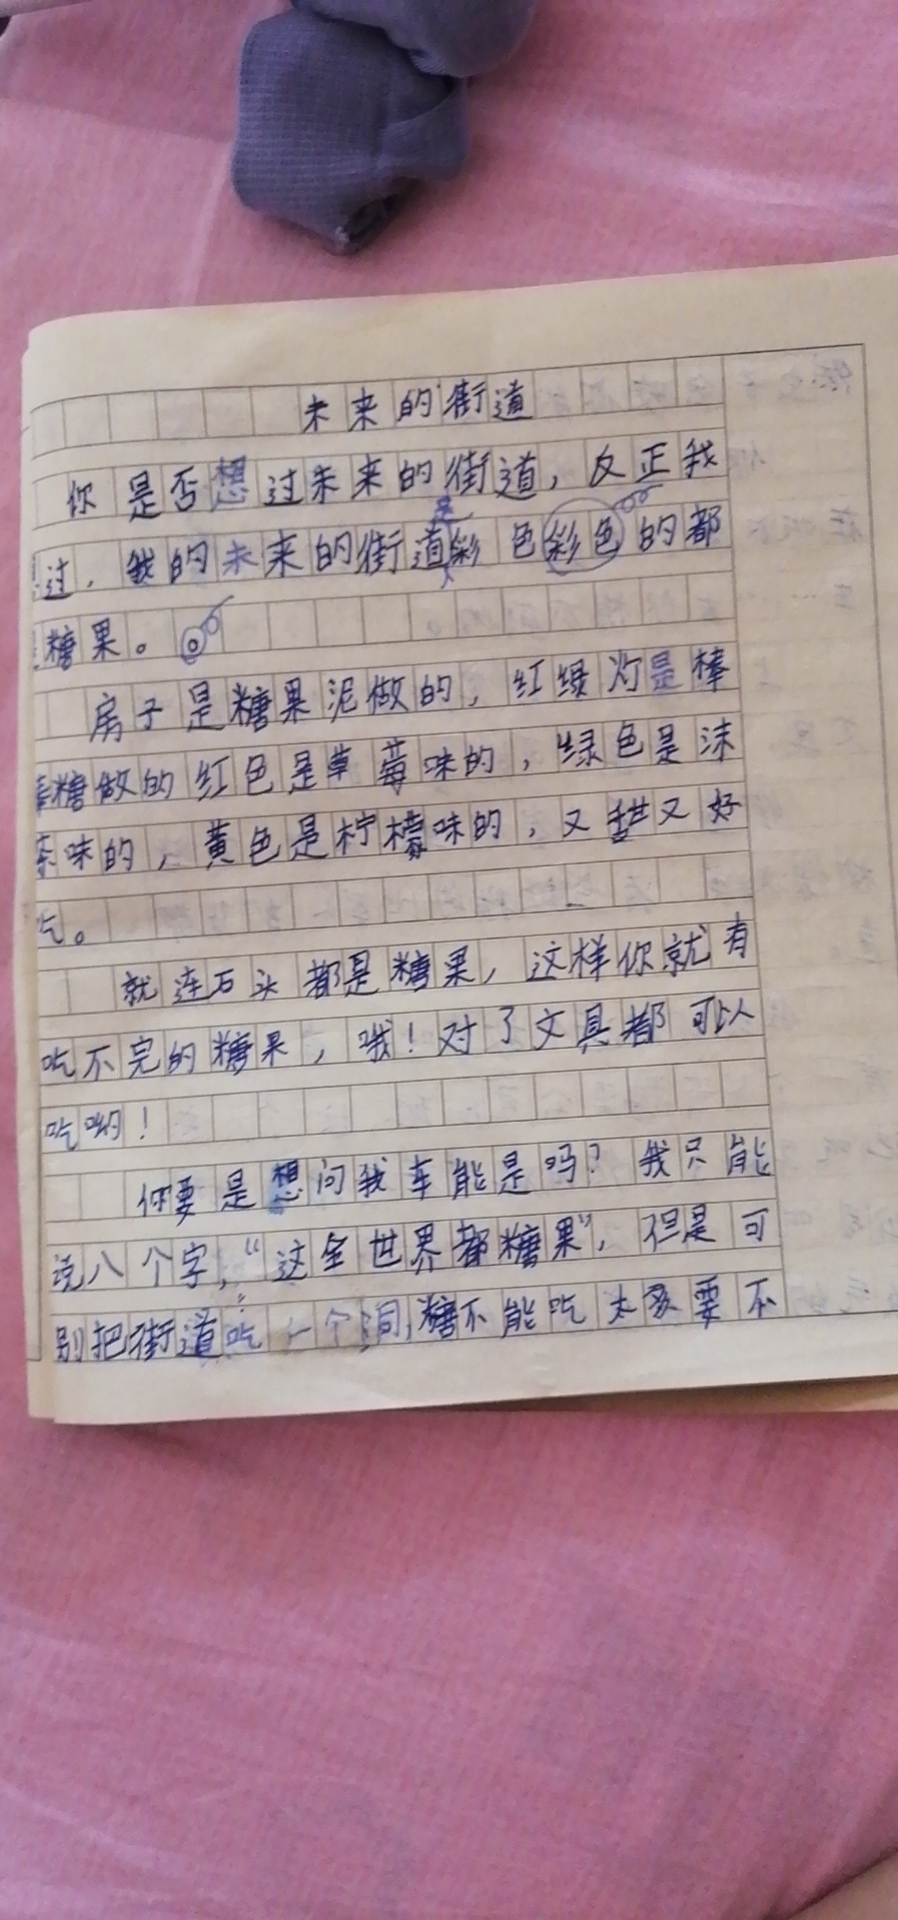 未来的街道
你是否想过未来的街道，反正我
过，我的未来的街道是彩色彩色的都
糖果。
房子是糖果泥做的，红绿灯是棒
棒糖做的红色是草莓味的，绿色是沫
茶味的，黄色是柠檬味的，又甜又好
吃。
就连石头都是糖果，这样你就有
吃不完的糖果，哦！对了文具都可以
吃哟！
你要是想问我车能是吗？我只能
说八个字，“这全世界都糖果”，但是可
别把街道吃一个洞，糖不能吃太多要不